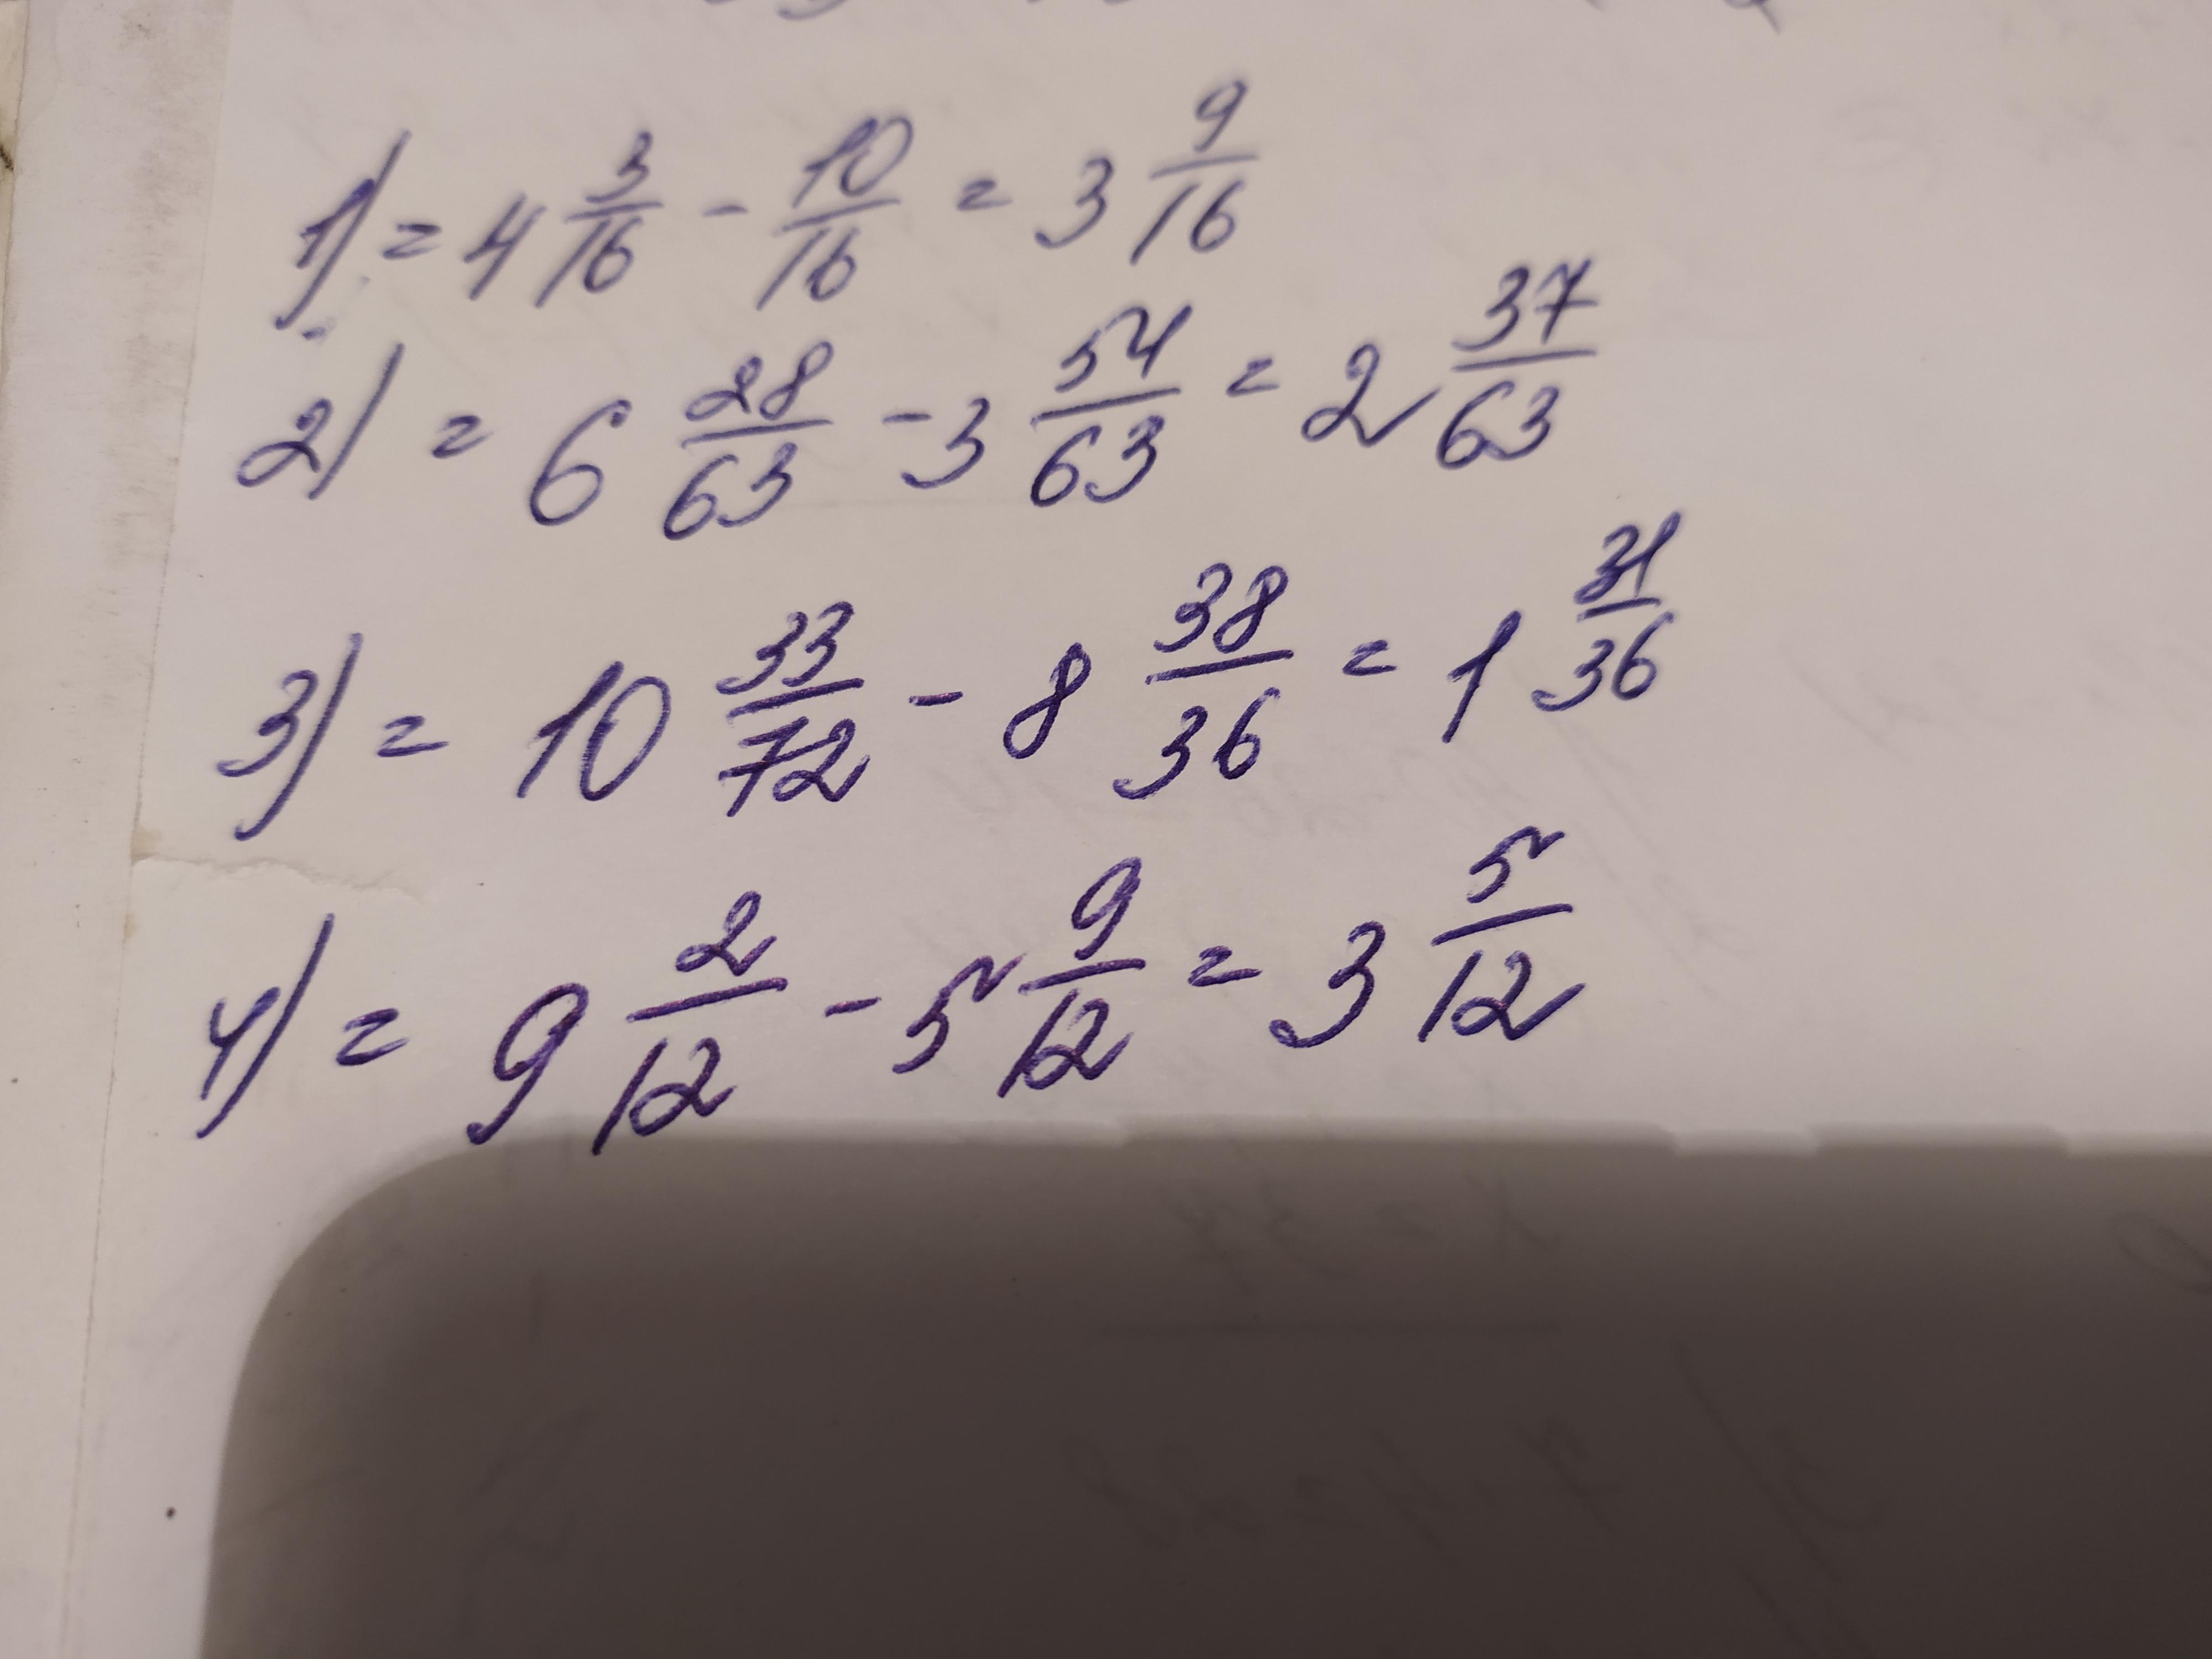 1) = 4 3/16 - 10/16 = 3 9/16
2) = 6 28/63 - 3 54/63 = 2 37/63
3) = 10 33/72 - 8 38/36 = 1 31/36
4) = 9 2/12 - 5 9/12 = 3 5/12